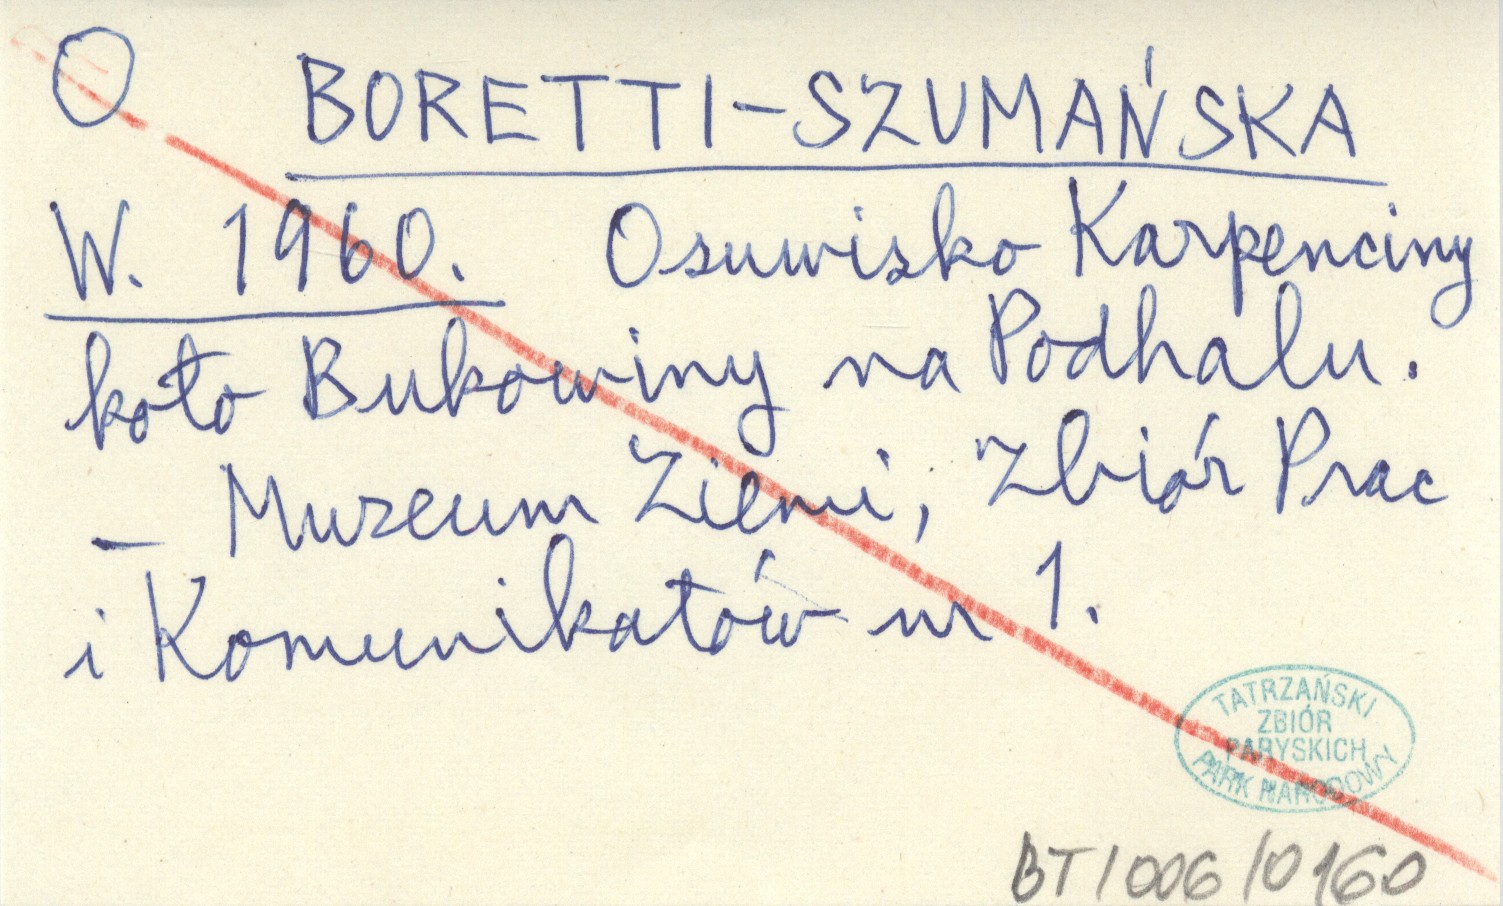 O BORETTI-SZUMAŃSKA
W. 1960. Osuwisko Karpenciny
koło Bukowiny na Podhalu.
– Muzeum Ziemi, Zbiór Prac
i Komunikatów nr 1.
TATRZAŃSKI
ZBIÓR
PARYSKICH
PARK NARODOWY
BT/006/0160